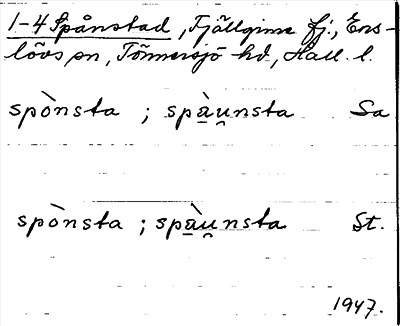 1-4 Spånstad, Fjällginne fj., Ens-
lövs sn, Tönnersjö hd, Hall. l.
spònsta ; spà̱u̯nsta Sa
spònsta ; spà̱u̯nsta St.
1947.